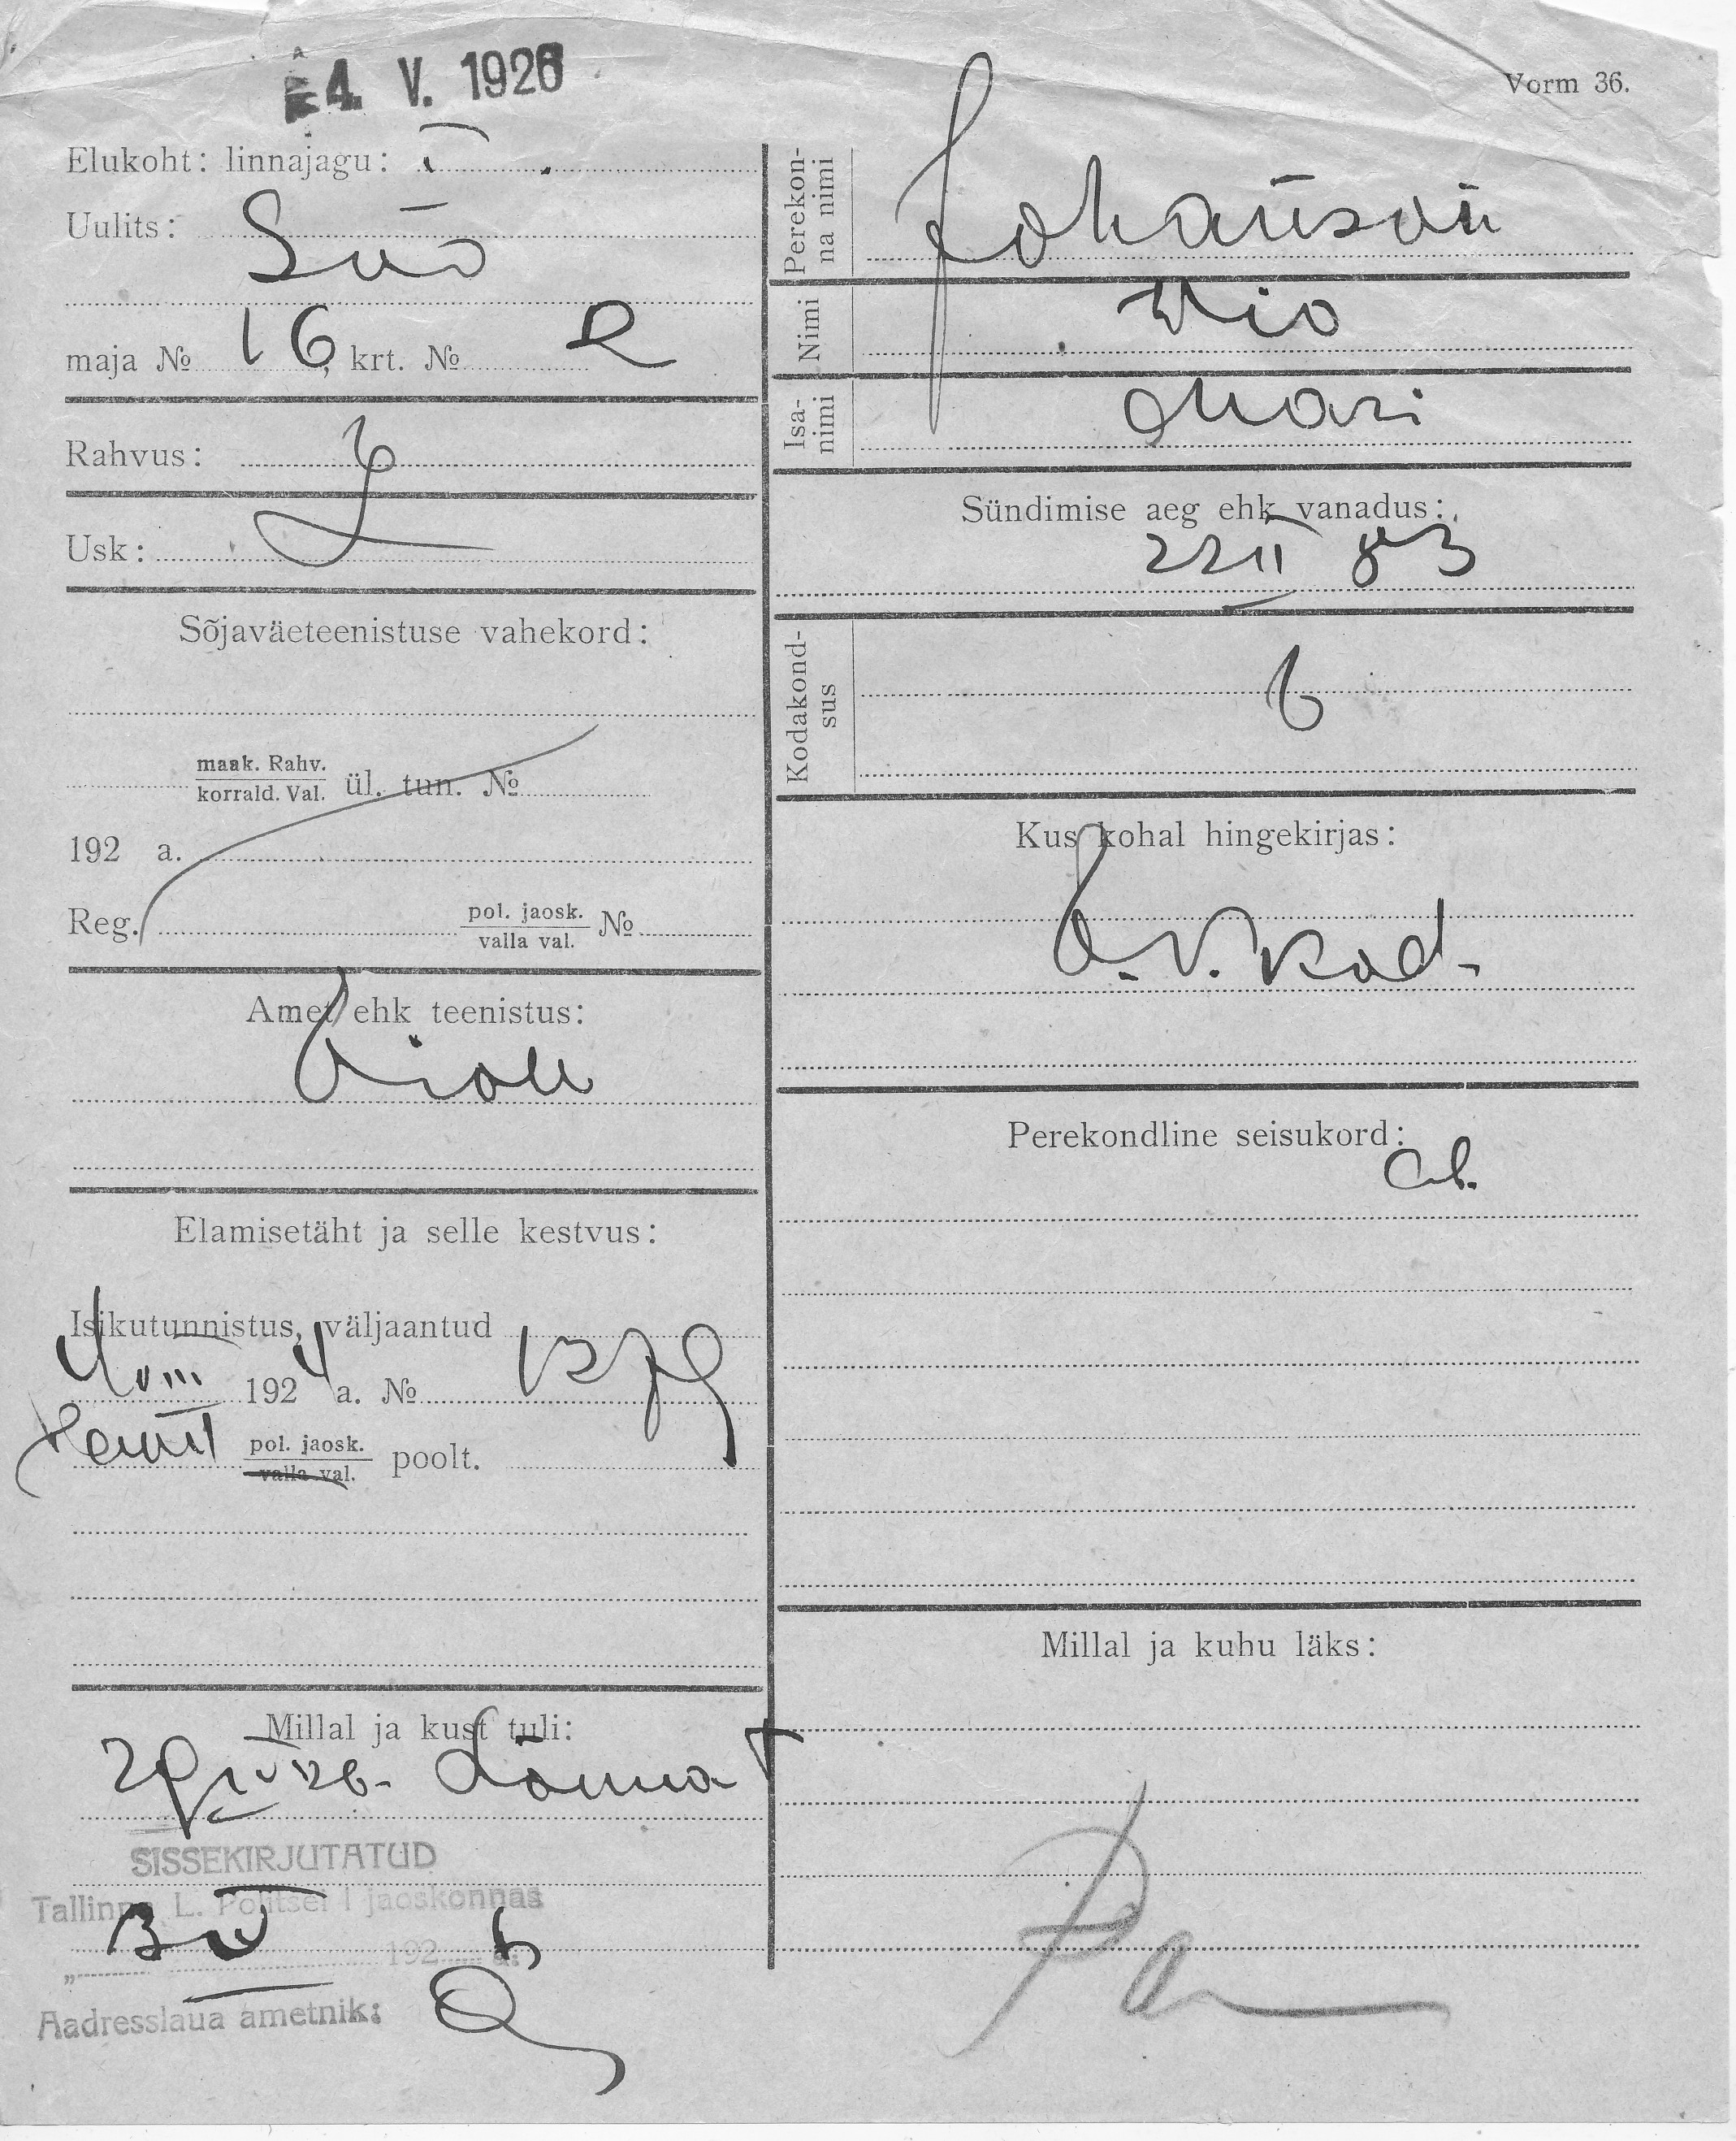 4. V. 1926
Vorm 36.
Elukoht: linnajagu: I.
Uulits:
maja № 16, krt. № 2
Rahvus: E
Usk: L
Sõjaväeteenistuse vahekord:
maak. Rahv.
korrald. Val. ül. tun. №
192 a.
Reg. pol. jaosk.
valla val. №
Amet ehk teenistus:
Elamisetäht ja selle kestvus:
Isikutunnistus, väljaantud
4 VIII 1924 a. №
pol. jaosk.
valla val. poolt.
Millal ja kust tuli:
SISSEKIRJUTATUD
Tallinna L. Politsei I jaoskonnas
„ 3 V 1926 a.
Aadresslaua ametnik:
Perekon-
na nimi Johanson
Nimi
Isa-
nimi Mari
Sündimise aeg ehk vanadus:
22 II 83
Kodakond-
sus E
Kus kohal hingekirjas:
E. V. kod.
Perekondline seisukord:
ab.
Millal ja kuhu läks: